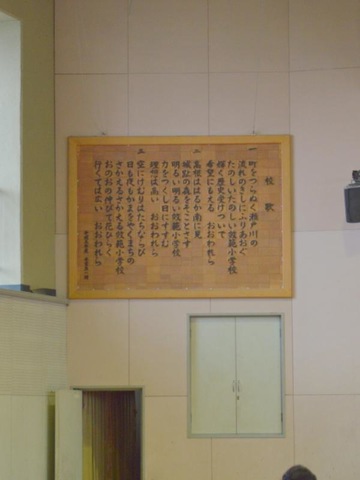 校歌
一 町をつらぬく瀬戸川の
流れのきしにふりあおぐ
たのしいたのしい效範小学校
輝く歴史受けついで
希望にもえる おおわれら
二 高根ははるか南に見
城趾の森をそことさす
明るい明るい效範小学校
力をつくし日にすすむ
理想は高い おおわれら
三 空にけむりはたちならび
日も夜もかまをやくまちの
さかえるさかえる效範小学校
おのおの伸びて花ひらく
行くては広い おおわれら